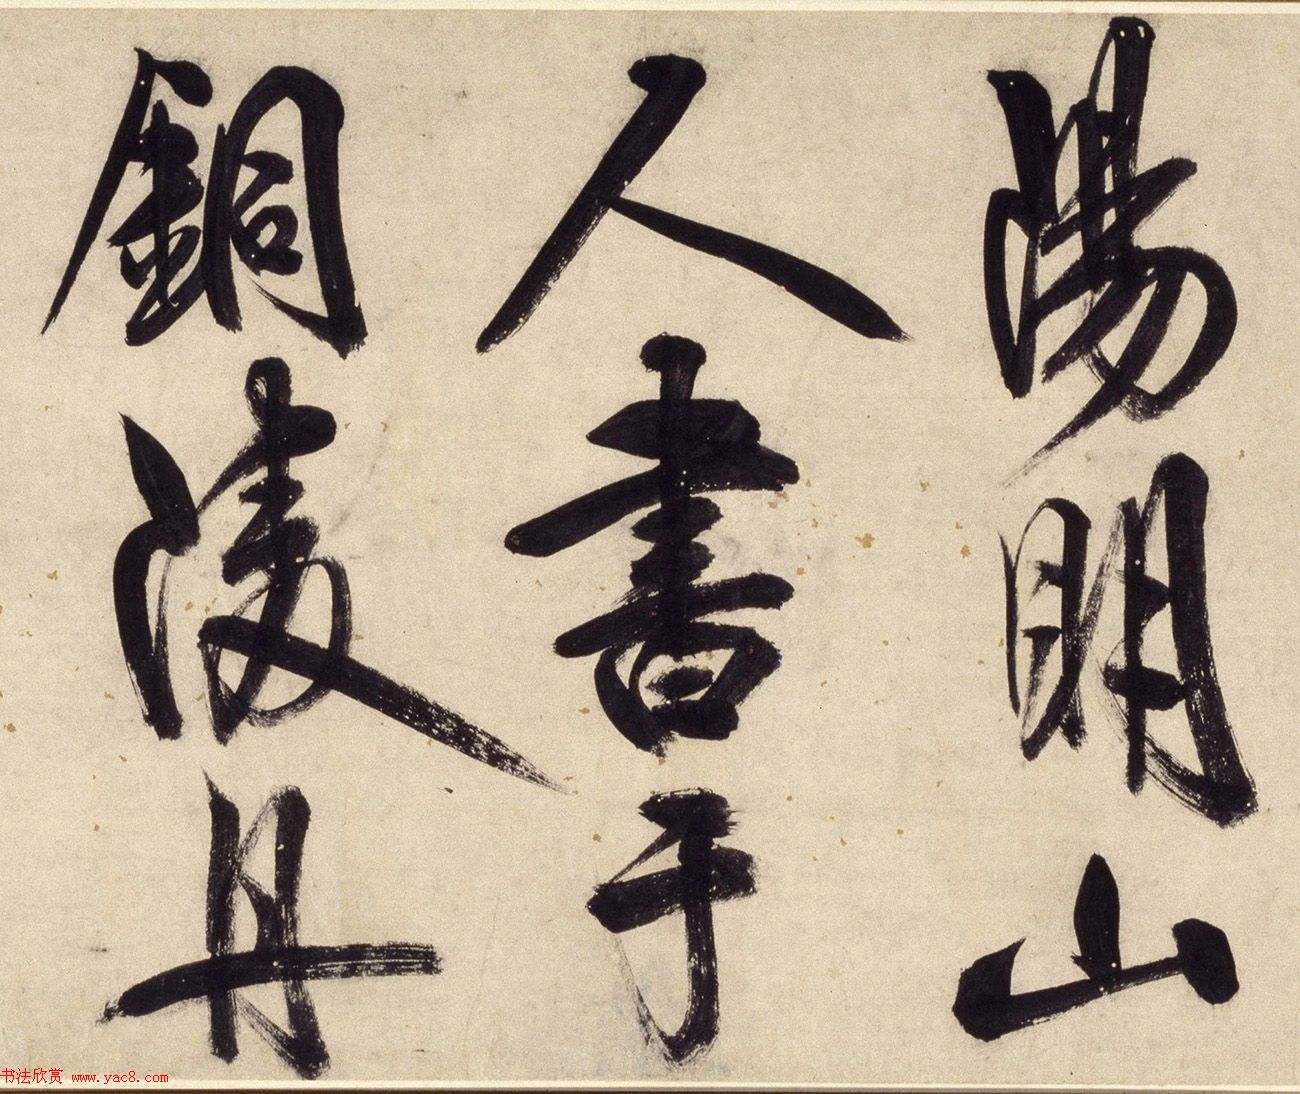 陽明山
人書于
銅陵舟
书法欣赏 www.yac8.com